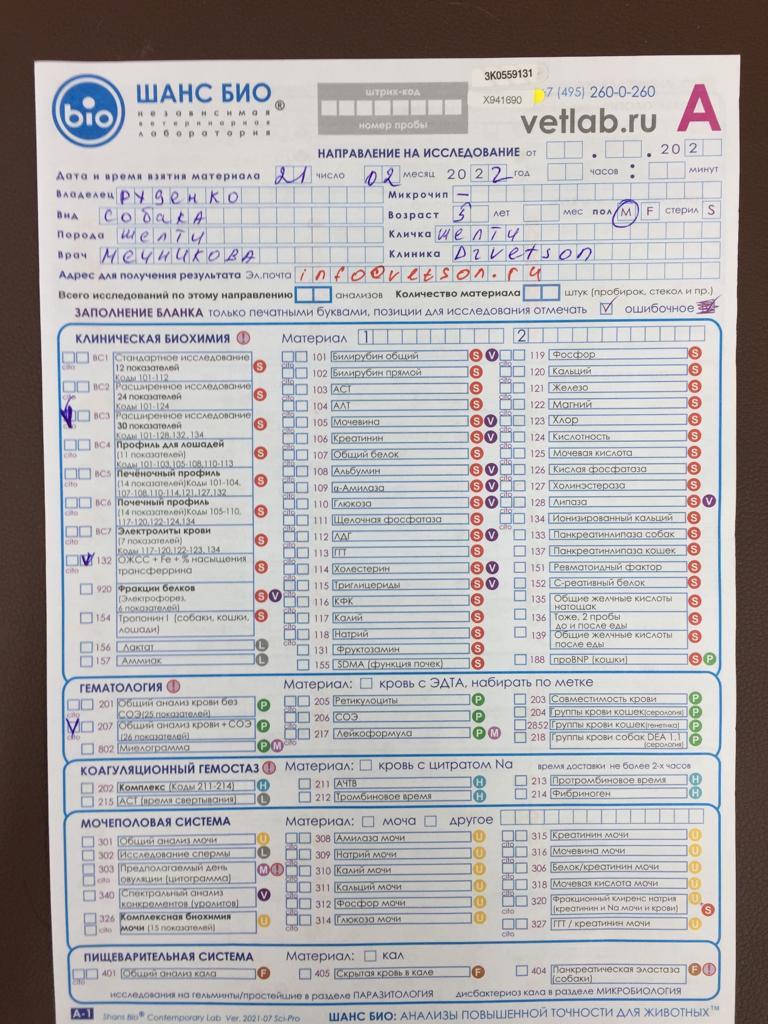 bio
ШАНС БИО ®
независимая
ветеринарная
лаборатория
штрих-код
номер пробы
3K0559131
X941690
7 (495) 260-0-260
vetlab.ru
A
НАПРАВЛЕНИЕ НА ИССЛЕДОВАНИЕ от . . 202
Дата и время взятия материала 21 число 02 месяц 2022 год часов : минут
Владелец РУДЕНКО Микрочип –
Вид СОБАКА Возраст 5 лет мес пол M F стерил S
Порода ШЕЛТИ Кличка ШЕЛТИ
Врач МЕЧНИКОВА Клиника Divetson
Адрес для получения результата Эл.почта info@vetson.ru
Всего исследований по этому направлению анализов Количество материала штук (пробирок, стекол и пр.)
ЗАПОЛНЕНИЕ БЛАНКА только печатными буквами, позиции для исследования отмечать ошибочное
КЛИНИЧЕСКАЯ БИОХИМИЯ Материал 1 2
BC1 Стандартное исследование
12 показателей
Коды 101-112
BC2 Расширенное исследование
24 показателей
Коды 101-124
BC3 Расширенное исследование
30 показателей
Коды 101-128,132, 134
BC4 Профиль для лошадей
(11 показателей)
Коды 101-103,105-108,110-113
BC5 Печёночный профиль
(14 показателей)Коды 101-104,
107-108,110-114,121,127,132
BC6 Почечный профиль
(14 показателей)Коды 105-110,
117-120,122-124,134
BC7 Электролиты крови
(7 показателей)
Коды 117-120,122-123, 134
132 ОЖСС + Fe + % насыщения
трансферрина
920 Фракции белков
(Электрофорез,
6 показателей)
154 Тропонин I (собаки, кошки,
лошади)
156 Лактат
157 Аммиак
101 Билирубин общий
102 Билирубин прямой
103 АСТ
104 АЛТ
105 Мочевина
106 Креатинин
107 Общий белок
108 Альбумин
109 α-Амилаза
110 Глюкоза
111 Щелочная фосфатаза
112 ЛДГ
113 ГГТ
114 Холестерин
115 Триглицериды
116 КФК
117 Калий
118 Натрий
131 Фруктозамин
155 SDMA (функция почек)
119 Фосфор
120 Кальций
121 Железо
122 Магний
123 Хлор
124 Кислотность
125 Мочевая кислота
126 Кислая фосфатаза
127 Холинэстераза
128 Липаза
134 Ионизированный кальций
133 Панкреатинлипаза собак
137 Панкреатинлипаза кошек
151 Ревматоидный фактор
152 С-реативный белок
135 Общие желчные кислоты
натощак
136 Тоже, 2 пробы
до и после еды
139 Общие желчные кислоты
после еды
188 проBNP (кошки)
ГЕМАТОЛОГИЯ Материал: кровь с ЭДТА, набирать по метке
201 Общий анализ крови без
СОЭ(25 показателей)
207 Общий анализ крови + СОЭ
(26 показателей)
802 Миелограмма
205 Ретикулоциты
206 СОЭ
217 Лейкоформула
203 Совместимость крови
204 Группы крови кошек(серология)
2852 Группы крови кошек(генетика)
218 Группы крови собак DEA 1.1
(серология)
КОАГУЛЯЦИОННЫЙ ГЕМОСТАЗ Материал: кровь с цитратом Na время доставки не более 2-х часов
202 Комплекс (Коды 211-214)
215 АСТ (время свертывания)
211 АЧТВ
212 Тромбиновое время
213 Протромбиновое время
214 Фибриноген
МОЧЕПОЛОВАЯ СИСТЕМА Материал: моча другое
301 Общий анализ мочи
302 Исследование спермы
303 Предполагаемый день
овуляции (цитограмма)
340 Спектральный анализ
конкрементов (уролитов)
326 Комплексная биохимия
мочи (15 показателей)
308 Амилаза мочи
309 Натрий мочи
310 Калий мочи
311 Кальций мочи
312 Фосфор мочи
314 Глюкоза мочи
315 Креатинин мочи
316 Мочевина мочи
306 Белок/креатинин мочи
318 Мочевая кислота мочи
320 Фракционный клиренс натрия
(креатинин и Na мочи и крови)
327 ГГТ / креатинин мочи
ПИЩЕВАРИТЕЛЬНАЯ СИСТЕМА Материал: кал
401 Общий анализ кала
405 Скрытая кровь в кале
404 Панкреатическая эластаза
(собаки)
исследования на гельминты/простейшие в разделе ПАРАЗИТОЛОГИЯ дисбактериоз кала в разделе МИКРОБИОЛОГИЯ
A-1 Shans Bio® Contemporary Lab Ver. 2021-07 Sci-Pro ШАНС БИО: АНАЛИЗЫ ПОВЫШЕННОЙ ТОЧНОСТИ ДЛЯ ЖИВОТНЫХ™